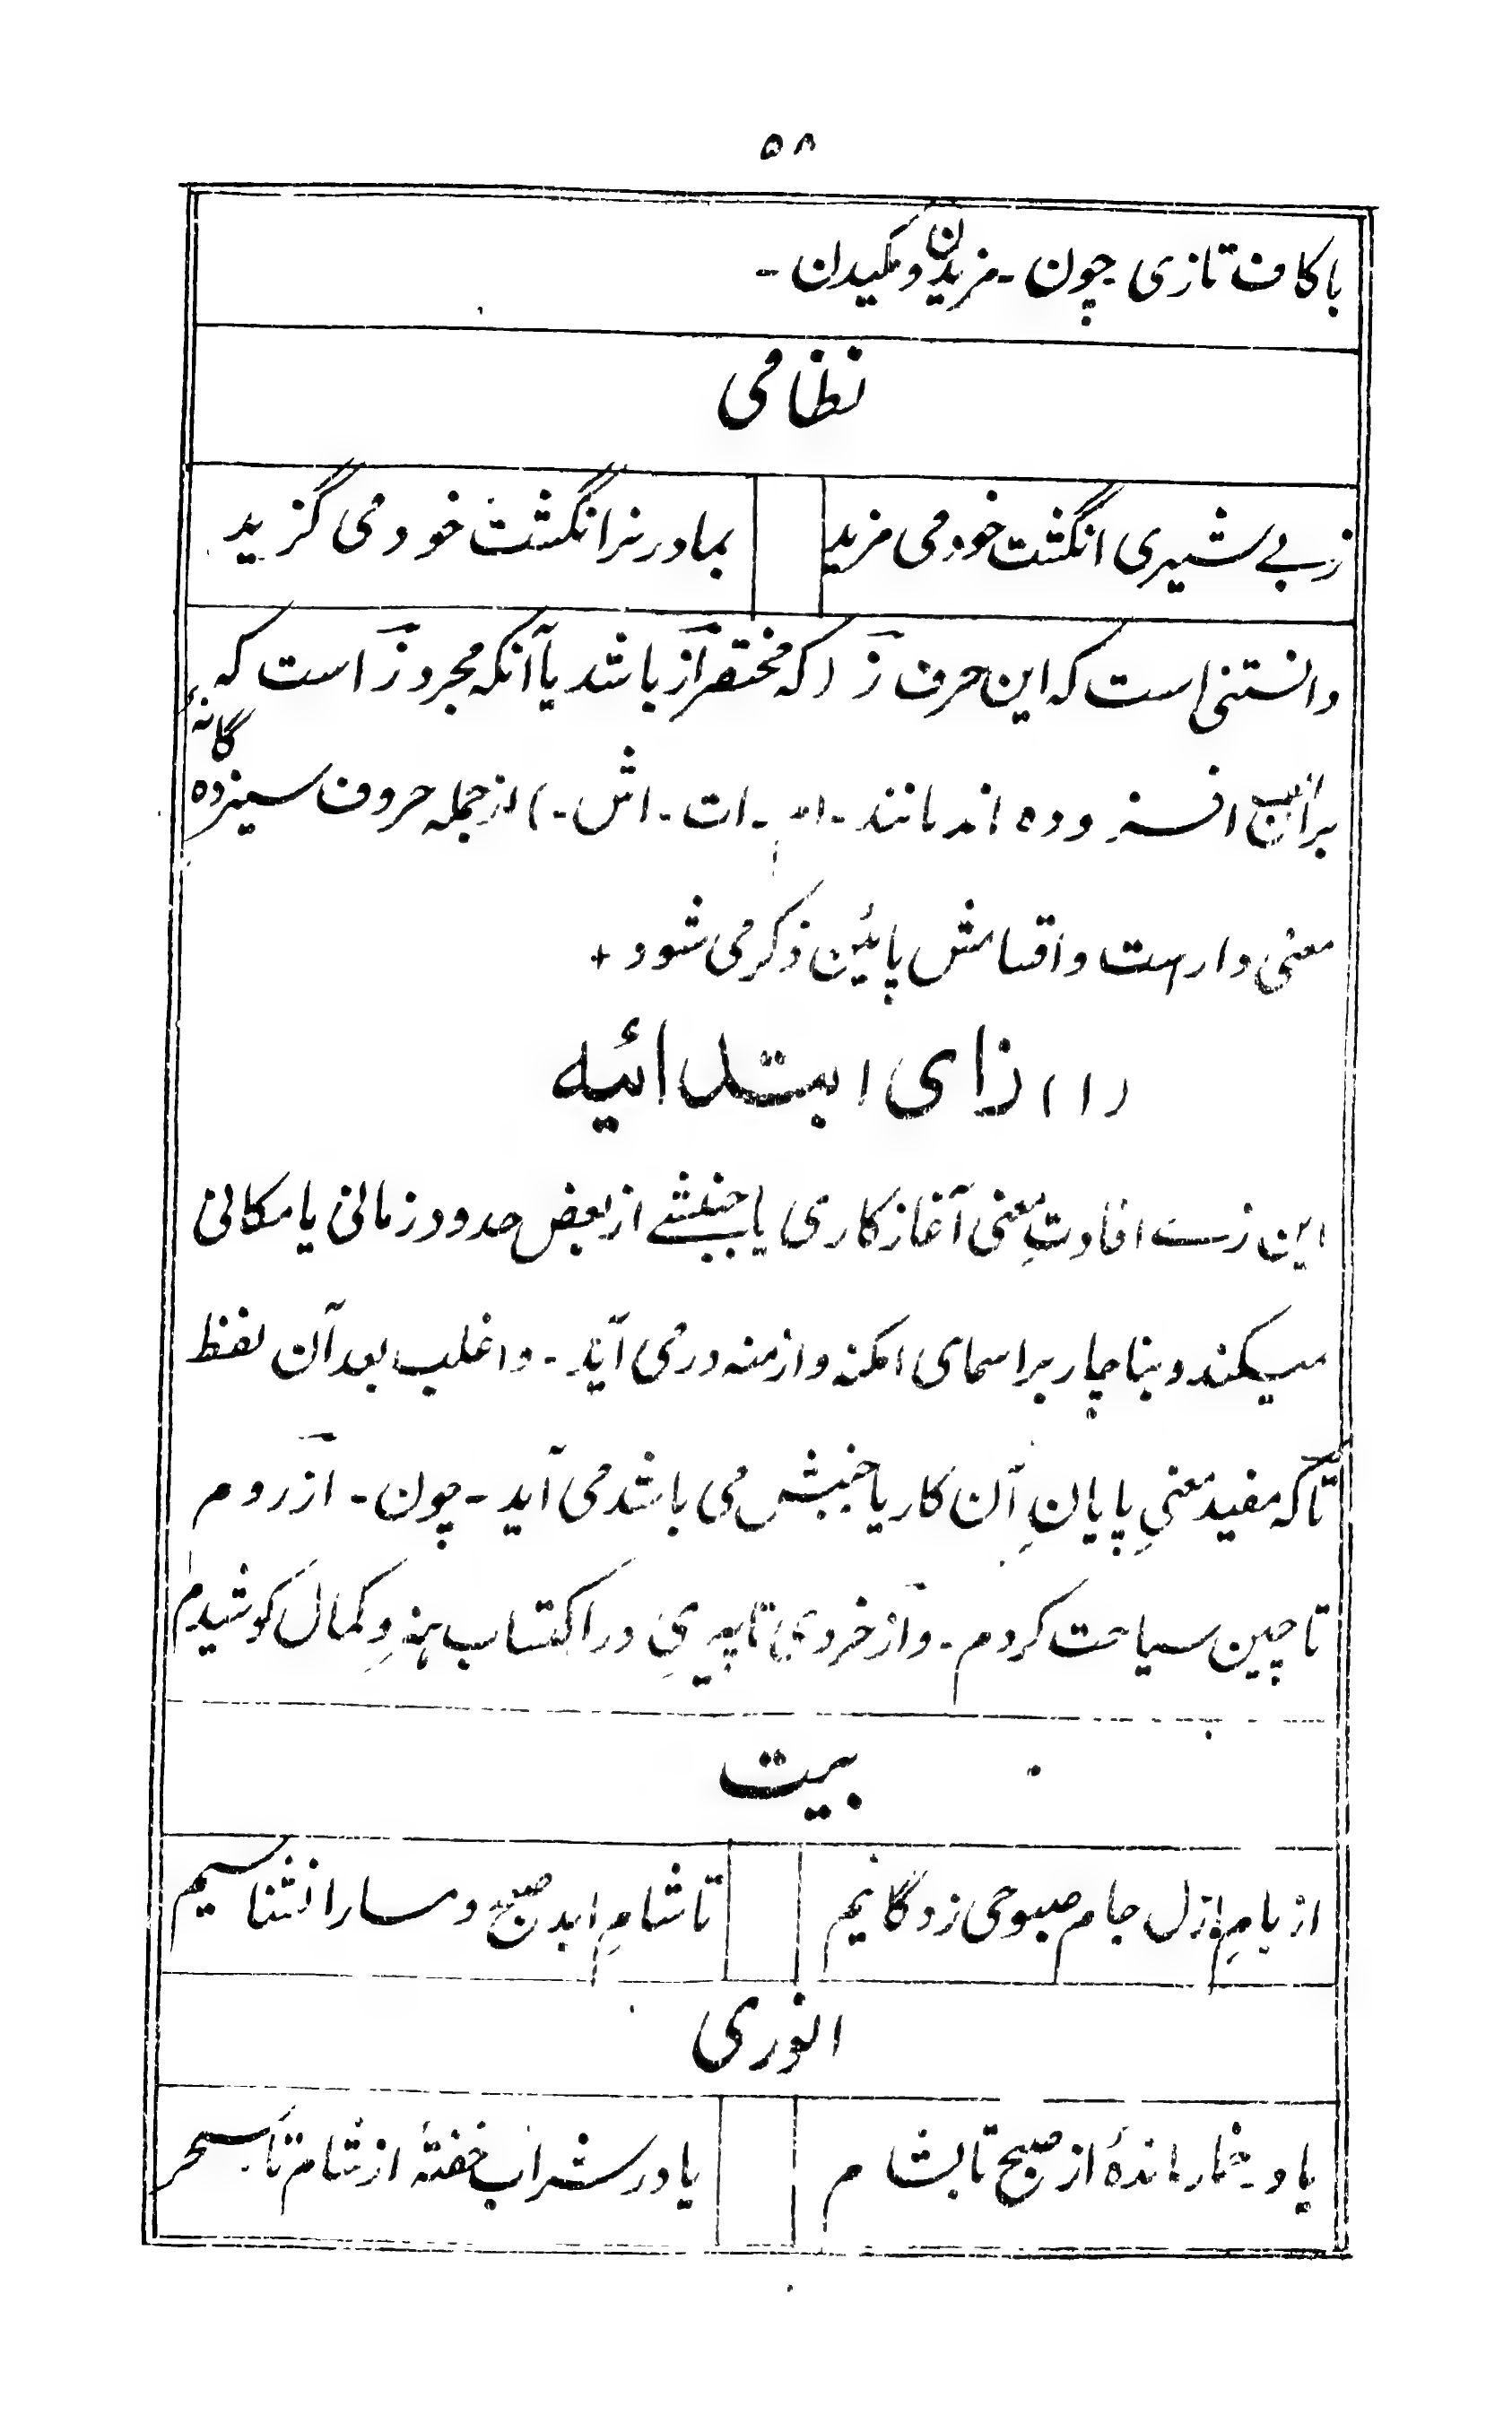 ۵۸
با کاف تازی چون ـ مزیدن و مکیدن ـ
نظامی
ز بے شیری انگشت خود می مزید
بمادر بر انگشت خود می گزید
دانستنی است که این حرف زَ (که مختصر اَز باشد یا آنکه مجرد زَ است که
بر آن افزوده اند مانند ـ ام ـ ات ـ اش ـ) از جمله حروف سیزده گانهٔ
معنی دار هست و اقسامش پائین ذکر می شود +
(۱) زای ابتدائیه
این زے افادتِ معنی آغاز کاری یا جنبشے از بعض حدود زمانی یا مکانی
میکند و بناچار بر اسمای امکنه و ازمنه در می آید ـ و اغلب بعد آن لفظ
تا که مفید معنیِ پایانِ آن کار یا جنبش می باشد می آید ـ چون ـ از روم
تا چین سیاحت کردم ـ و از خردی تا پیریِ در اکتساب هنر و کمال کوشیدم
بیت
از بامِ ازل جام صبوحی زدگانیم
تا شامِ ابد صبح و مسا را نشناسیم
انوری
یا در خمار ماندهٔ از صبح تا بشام
یا در شراب خفتهٔ از شام تا سحر